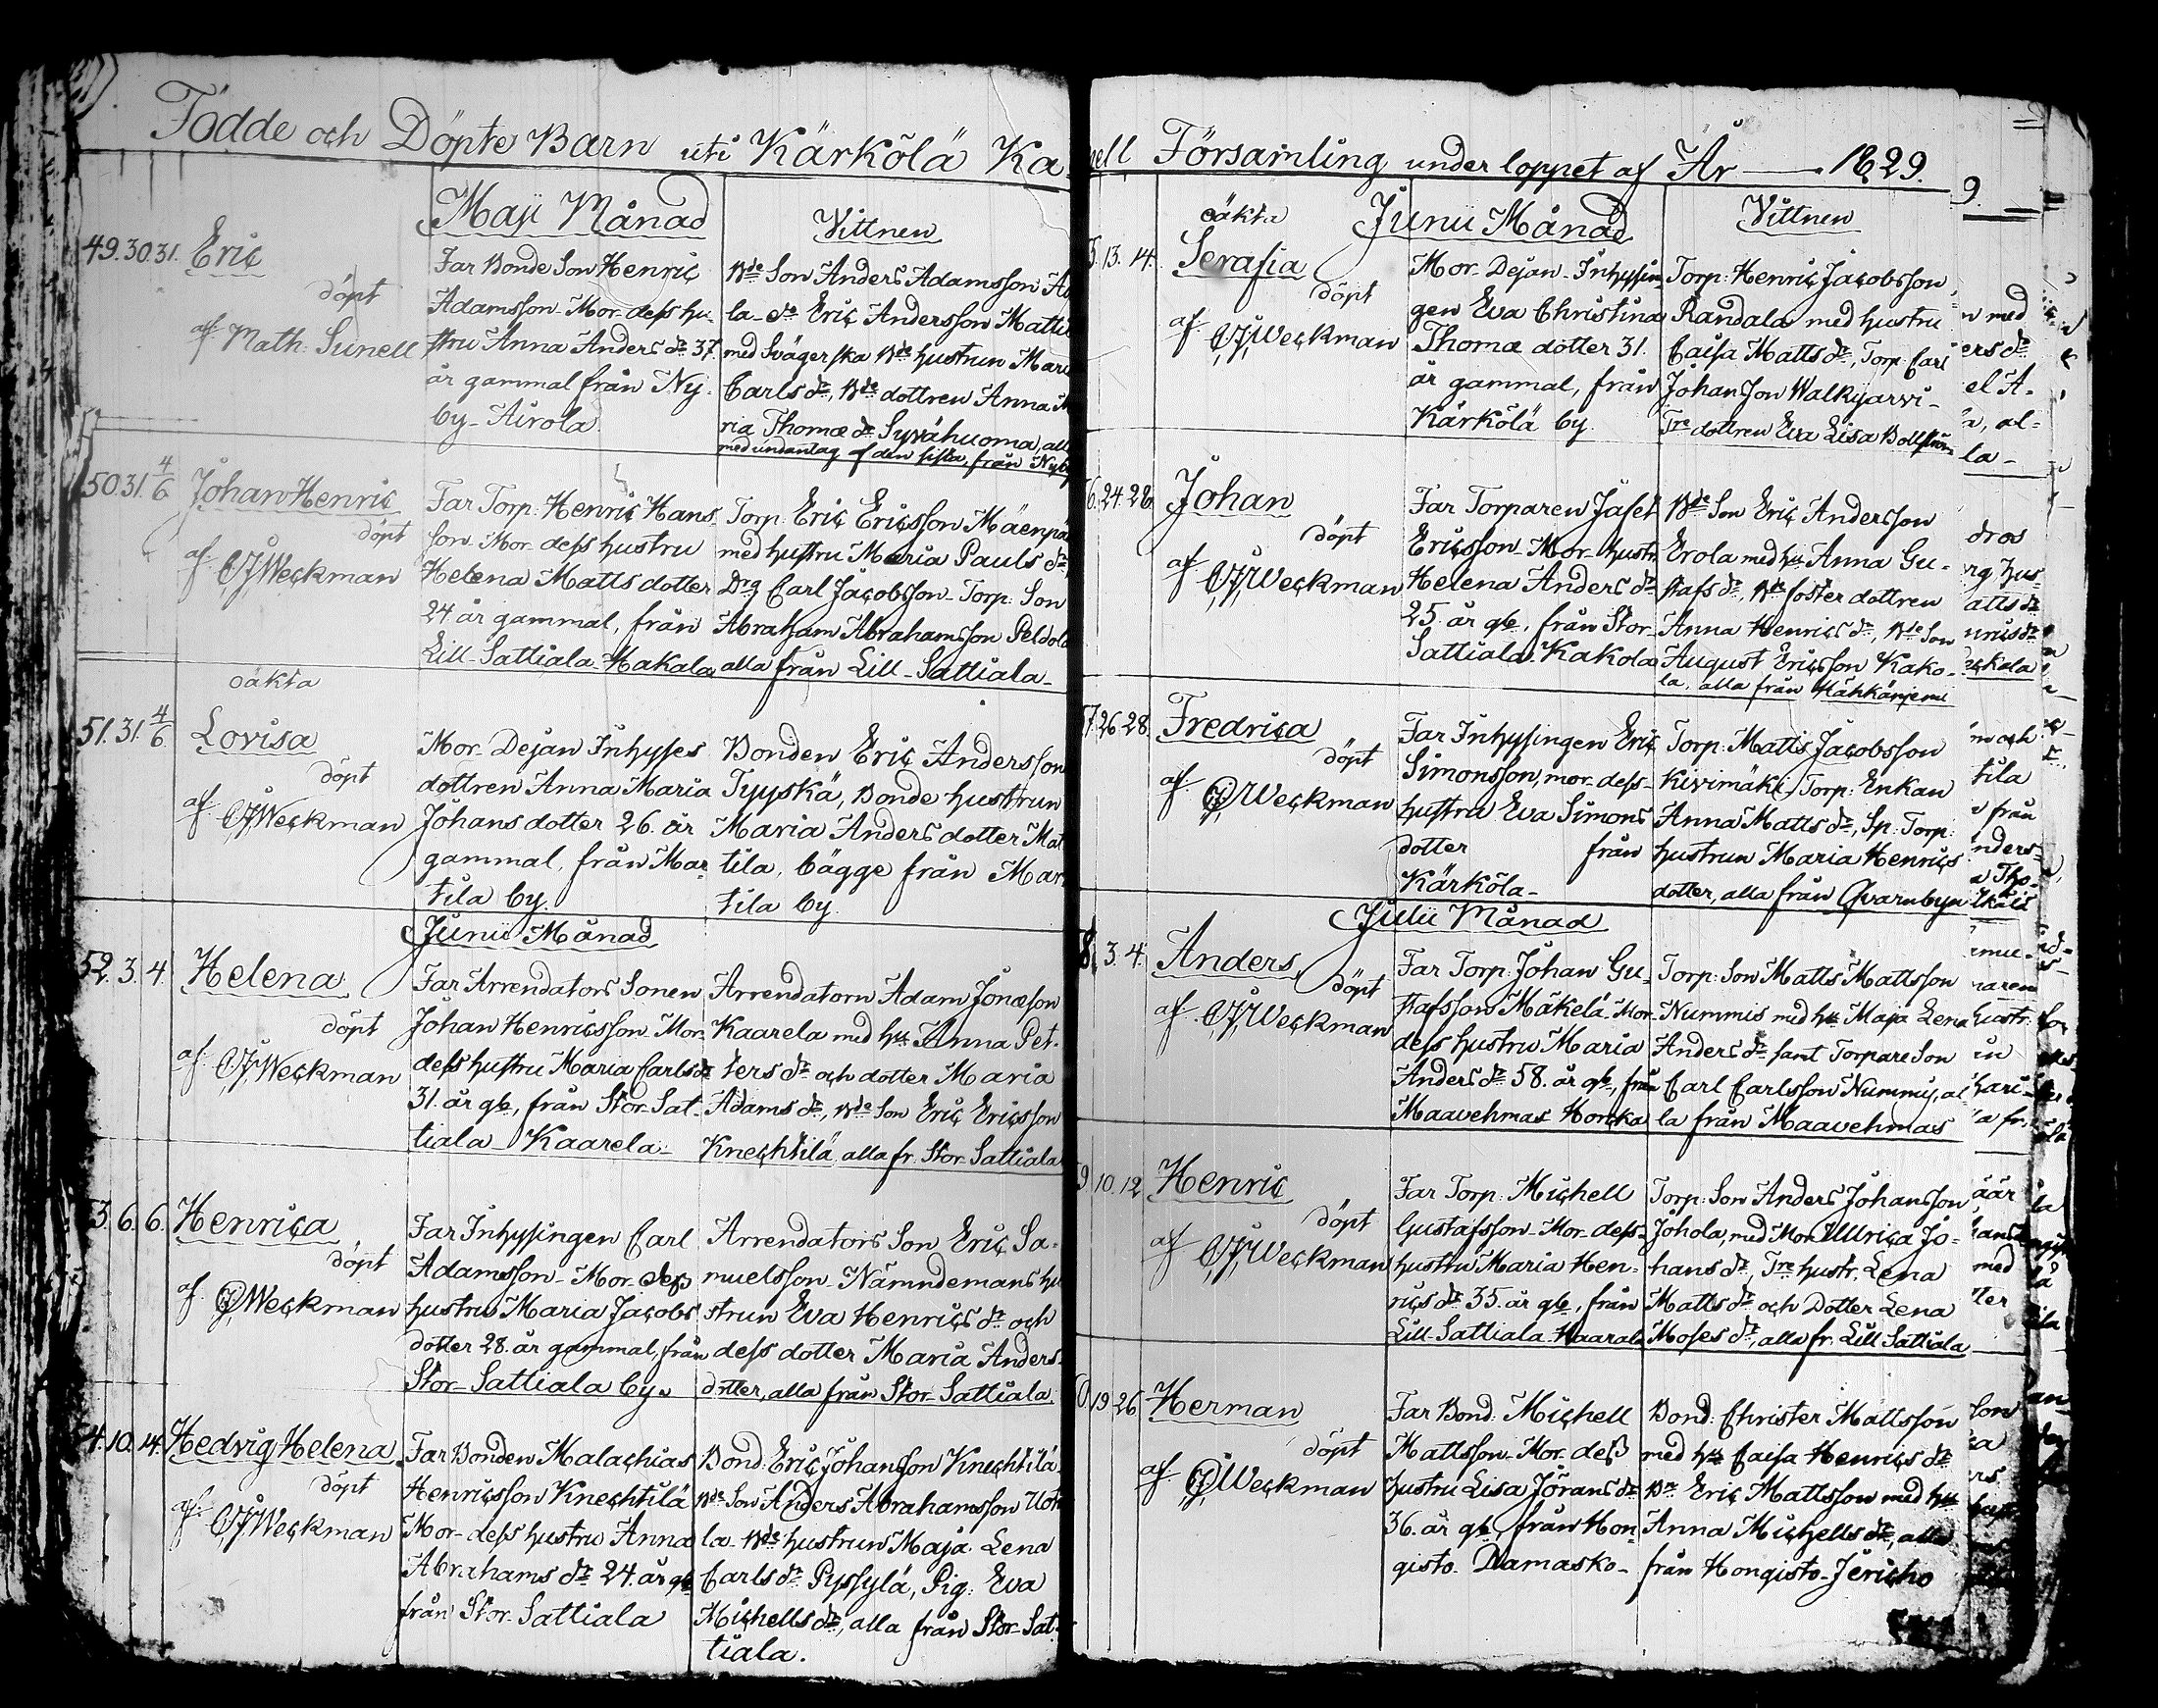 Födde och Döpte Barn uti Kärkölä Ka-
Maji Månad
Vittnen
49. 30. 31. Eric
döpt
af Nath. Sunell
Far Bonde Son Henric
Adamsson Mor dess hu-
stru Anna Anders dr 37.
år gammal från Ny-
by Airola
Bde Son Anders Adamsson
la Eric Andersson
med Svägerska Bde hustrun
Carls dr, Bde dottren Anna
ria Thomæ dr Syvähuoma,
med undantag af den sista, från
50. 31. 4/6 Johan Henric
döpt
af CJWeckman
Far Torp: Henric Hans-
son Mor dess hustru
Helena Matts dotter
24 år gammal, från
Lill-Sattiala Hakala
Torp: Eric Ericsson
med hustru Maria Pauls dr
Drg Carl Jacobsson Torp: Son
Abraham Abrahamsson
alla från Lill-Sattiala
oäkta
51. 31. 4/6 Lovisa
döpt
af CJWeckman
Mor Dejan Inhyses
dottren Anna Maria
Johans dotter 26. år
gammal, från Mar-
tila by.
Bonden Eric Andersson
Tyyskä, Bonde hustrun
Maria Anders dotter Mat
tila, bägge från Mar-
tila by
Junii Månad
52. 3. 4. Helena
döpt
af CJWeckman
Far Arrendators Sonen
Johan Henricsson Mor
dess hustru Maria Carls dr
31. år gl, från Stor-Sat-
tiala Kaarela
Arrendatorn Adam Jonæson
Kaarela med hu Anna Pet-
ters dr och dotter Maria
Adams dr, Bde Son Eric Ericsson
Knechtilä alla fr. Stor-Sattiala
3. 6. 6. Henrica
döpt
af CJWeckman
Far Inhysingen Carl
Adamsson Mor dess
hustru Maria Jacobs
dotter 28. år gammal, från
Stor-Sattiala by.
Arrendators Son Eric Sa-
muelsson Nämndemans hu
strun Eva Henrics dr och
dess dotter Maria Anders-
dotter, alla från Stor-Sattiala.
4. 10. 14. Hedvig Helena
döpt
af: CJWeckman
Far Bonden Malachias
Henricsson Knechtilä
Mor dess hustru Anna
Abrahams dr 24. år gl
från Stor-Sattiala
Bond: Eric Johansson Knechtilä
Bde Son Anders Abrahamsson
la Bde hustrun Maja Lena
Carls dr Pyssylä, Pig: Eva
Michells dr, alla från Stor-Sat-
tiala.
pell Församling under loppet af År 1829.
Junii Månad
Vittnen
oäkta
5. 13. 14. Serafia
döpt
af CJWeckman
Mor Dejan Inhysin-
gen Eva Christina
Thomæ dotter 31.
år gammal, från
Kärkölä by.
Torp: Henric Jacobsson
Randala med hustru
Caisa Matts dr, Torp: Carl
Johansson Walkjarvi
Tre dottren Eva Lisa
6. 24. 28. Johan
döpt
af CJWeckman
Far Torparen Jafet
Ericsson Mor hustr
Helena Anders dr
25. år gl, från Stor-
Sattiala Kakola
Bde Son Eric Andersson
Erola med hu Anna Gu-
stafs dr, Bde foster dottren
Anna Henrics dr, Bde Son
August Ericsson Kako-
la, alla från
7. 26. 28. Fredrica
döpt
af CJWeckman
Far Inhysingen Eric
Simonsson, mor dess
hustru Eva Simons
dotter från
Kärköla
Torp: Matts Jacobsson
Kivimäki, Torp: Enkan
Anna Matts dr, Sp: Torp:
hustrun Maria Henrics
dotter, alla från Qvarnbyn
Julii Månad
8. 3. 4. Anders
döpt
af CJWeckman
Far Torp: Johan Gu-
stafsson Mäkelä Mor
dess hustru Maria
Anders dr 58. år gl, från
Maavehmas Horcka
Torp: Son Matts Mattsson
Nummis med hu Maja Lena
Anders dr samt Torpare Son
Carl Carlsson Nummis, al
la från Maavehmas
9. 10. 12 Henric
döpt
af CJWeckman
Far Torp: Michell
Gustafsson Mor dess
hustru Maria Hen-
rics dr 35. år gl, från
Lill-Sattiala Haarala
Torp: Son Anders Johansson
Johola, med Mor Ulrica Jo-
hans dr, Tre hustr. Lena
Matts dr och Dotter Lena
Moses dr, alla fr. Lill Sattiala
0. 19 26 Herman
döpt
af CJWeckman
Far Bond: Michell
Mattsson Mor dess
hustru Lisa Jörans dr
36. år gl, från Hon-
gisto Damasko
Bond: Christer Mattsson
med hu Caisa Henrics dr
Bn Eric Mattsson med hu
Anna Michells dr, alla
från Hongisto Jericho